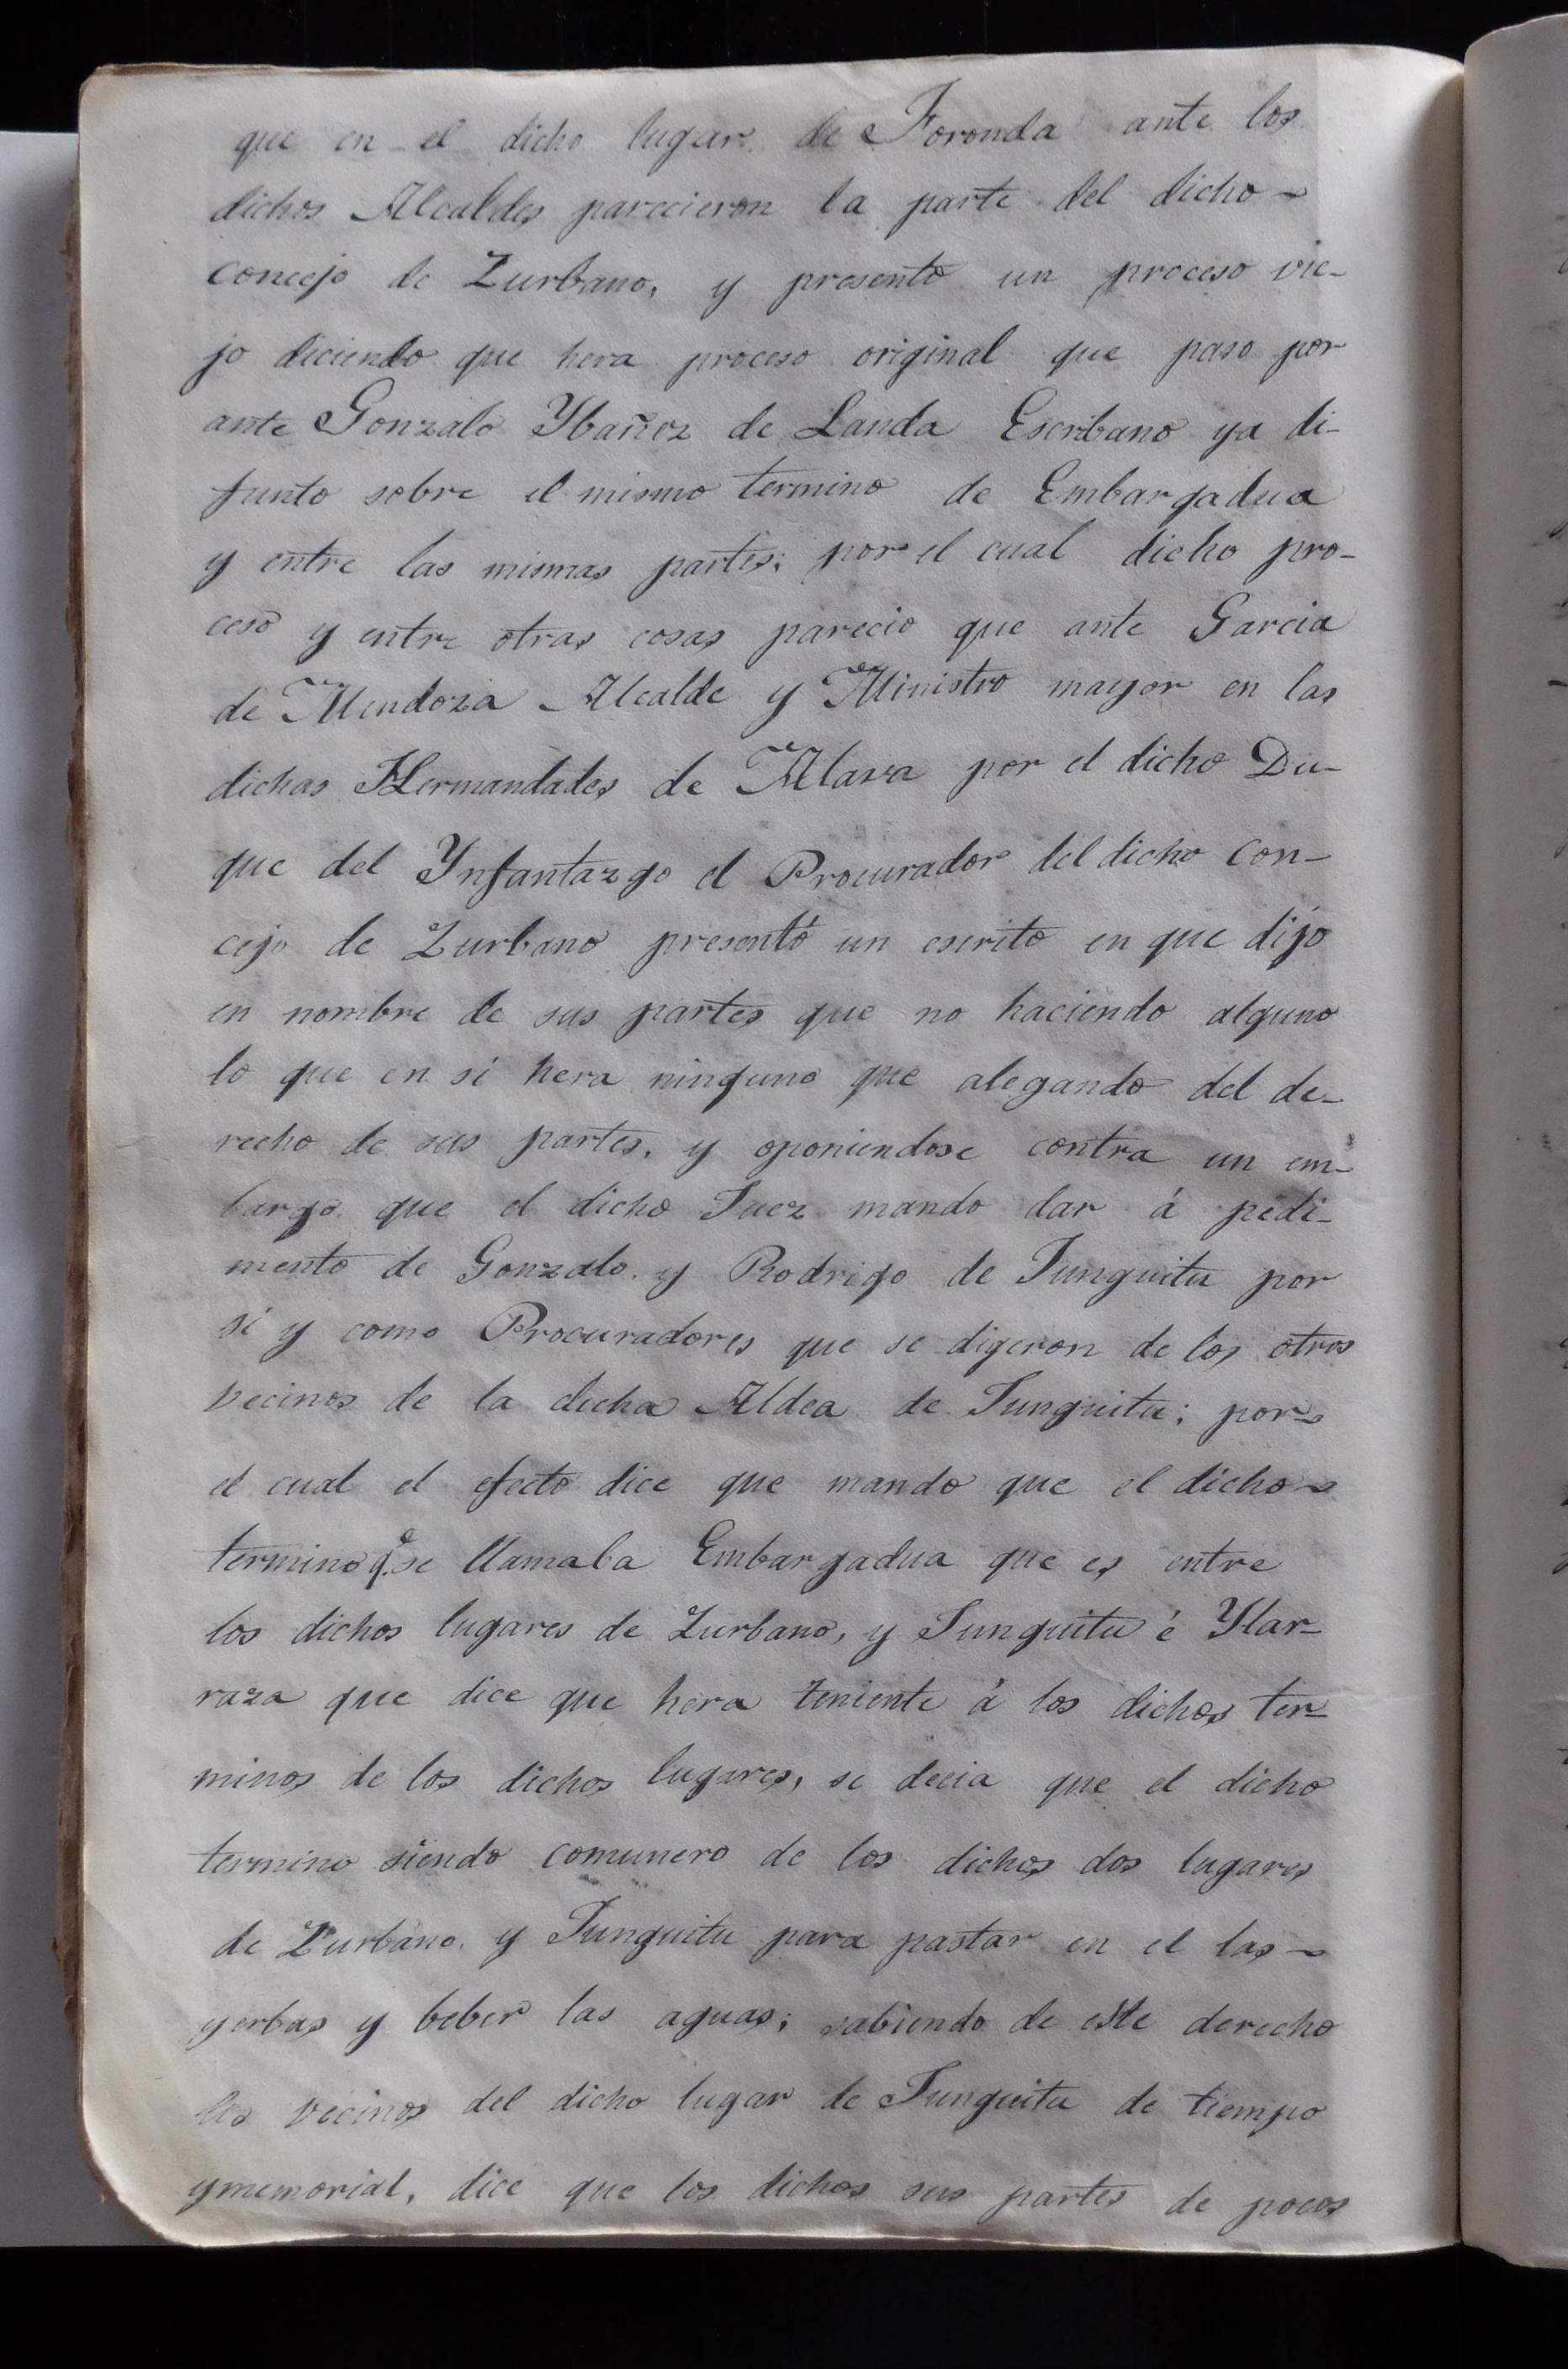 que en el dicho lugar de Foronda ante los
dichos Alcaldes parecieron la parte del dicho
concejo de Zurbano, y presentó un proceso vie-
jo diciendo que hera proceso original que paso por
ante Gonzalo Ybañez de Landa Escribano ya di-
funto sobre el mismo termino de Embargadua
y entre las mismas partes; por el cual dicho pro-
ceso y entre otras cosas parecio que ante Garcia
de Mendoza Alcalde y Ministro mayor en las
dichas Hermandades de Alava por el dicho Du-
que del Ynfantazgo el Procurador del dicho con-
cejo de Zurbano presentó un escrito en que dijo
en nombre de sus partes que no haciendo alguno
lo que en sí hera ninguno que alegando del de-
recho de sus partes, y oponiendose contra un em-
bargo que el dicho Juez mando dar á pedi-
mento de Gonzalo y Rodrigo de Junguitu por
sí y como Procuradores que se digeron de los otros
vecinos de la dicha Aldea de Junguitu; por
el cual el efecto dice que mando que el dicho
termino q.e se llamaba Embargadua que es entre
los dichos lugares de Zurbano, y Junguitu é Ylar-
raza que dice que hera teniente á los dichos ter-
minos de los dichos lugares, se decia que el dicho
termino siendo comunero de los dichos dos lugares
de Zurbano y Junguitu para pastar en el las
yerbas y beber las aguas; sabiendo de este derecho
los vecinos del dicho lugar de Junguitu de tiempo
ymemorial, dice que los dichos sus partes de pocos